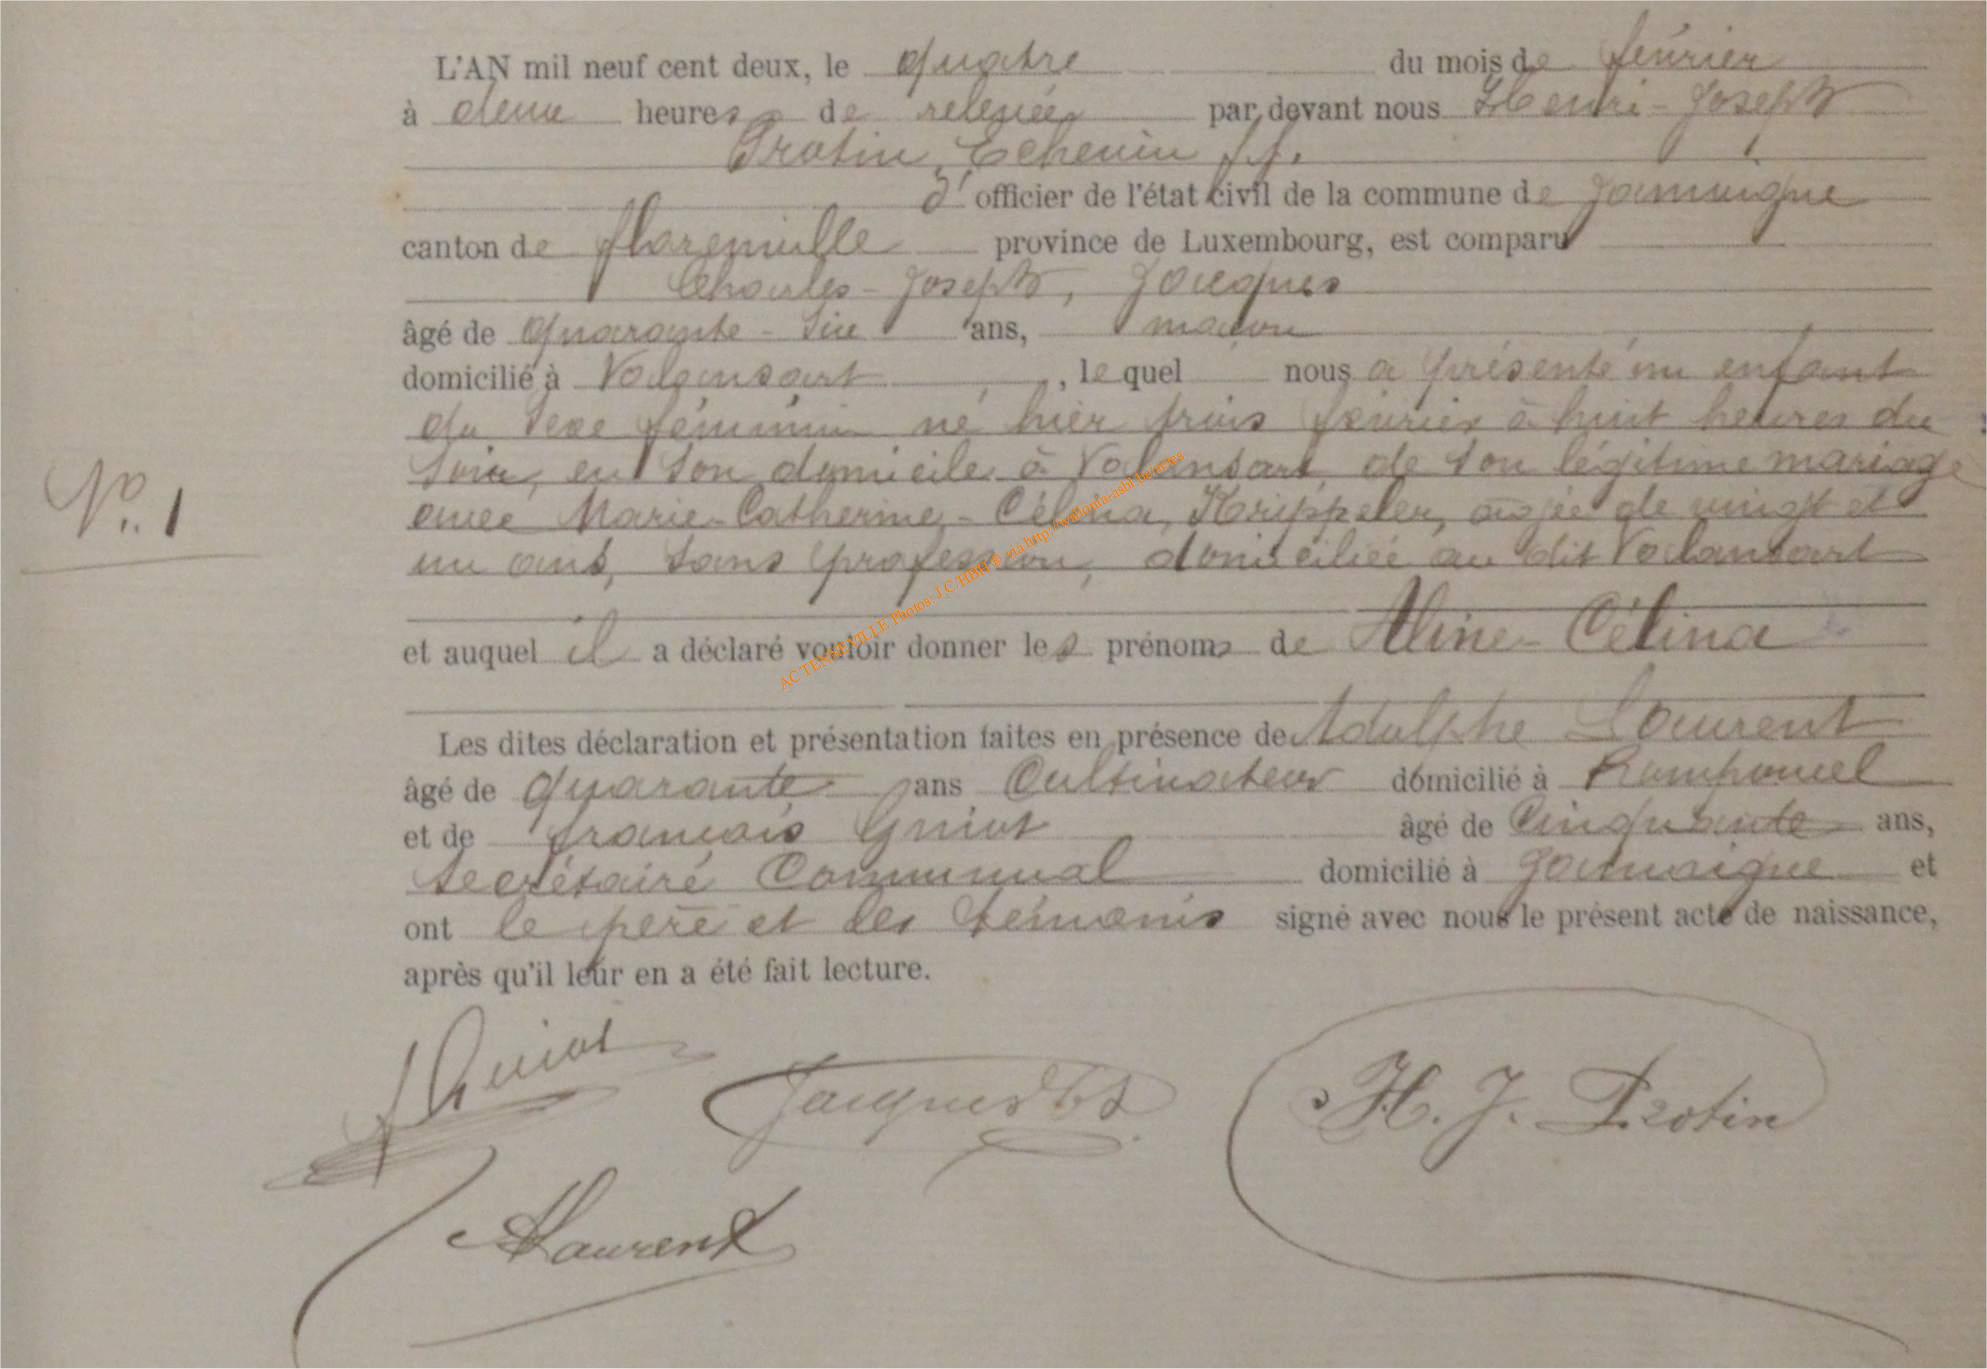 L'AN mil neuf cent deux, le quatre du mois de février
à deux heures de relevée par devant nous Henri-Joseph
Protin, Echevin f.f.
d' officier de l'état civil de la commune de Jamoigne
canton de florenville province de Luxembourg, est comparu
Charles-Joseph, Jacques
âgé de quarante-six ans, maçon
domicilié à Valansart, lequel nous a présenté un enfant
du sexe féminin né hier trois février à huit heures du
soir, en son domicile à Valansart, de son légitime mariage
avec Marie-Catherine-Célina, Krippeler, âgée de vingt et
Nº 1
un ans, sans profession, domiciliée au dit Valansart
et auquel il a déclaré vouloir donner les prénoms de Aline-Célina
Les dites déclaration et présentation faites en présence de Adolphe Laurent
âgé de quarante ans Cultivateur domicilié à
et de françois Guiot âgé de Cinquante ans,
secrétaire Communal domicilié à Jamoigne et
ont le père et les témoins signé avec nous le présent acte de naissance,
après qu'il leur en a été fait lecture.
f Guiot
Jacques
H. J. Protin
ALaurent